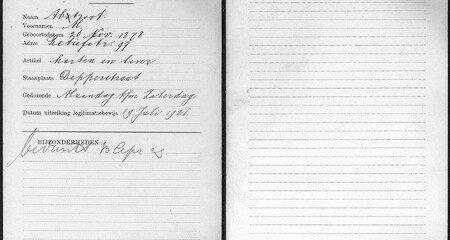 Naam Abstroot
Voornamen M.
Geboortedatum 26 Nov. 1878
Adres Retiefstr. 99
Artikel harten en lever
Staanplaats Dapperstraat
Gedurende Maandag t/m Zaterdag
Datum uitreiking legitimatiebewijs 19 Juli 1926
BIJZONDERHEDEN:
13 Apr 29